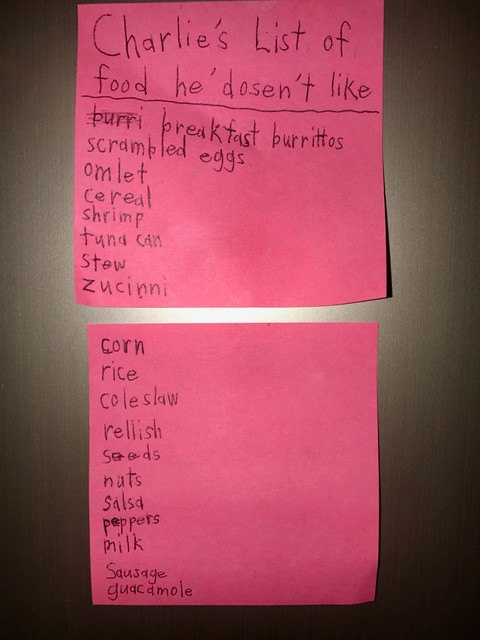 Charlie's List of
food he'dosen't like
burri breakfast burrittos
scrambled eggs
omlet
cereal
shrimp
tuna can
stew
zucinni
corn
rice
coleslaw
rellish
seeds
nuts
salsa
peppers
milk
Sausage
guacamole